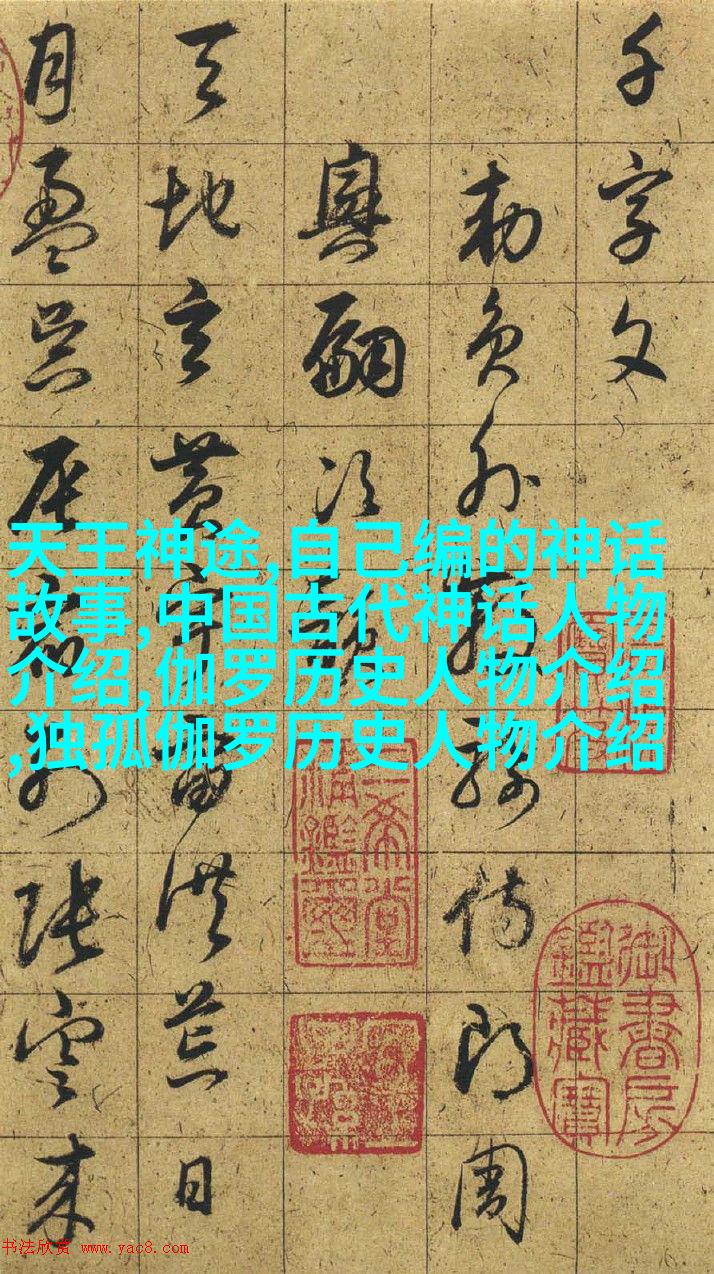 千字文
勅員外散騎侍郎周
興嗣次韻
天地玄黃宇宙洪荒日
月盈昃辰宿列張寒來
天王神途,自己编的神话
故事,中国古代神话人物
介绍,伽罗历史人物介绍
,独孤伽罗历史人物介绍
三希堂
精鑑璽
宜子
孫
御書房
鑑藏寶
书法欣赏 www.yac8.com